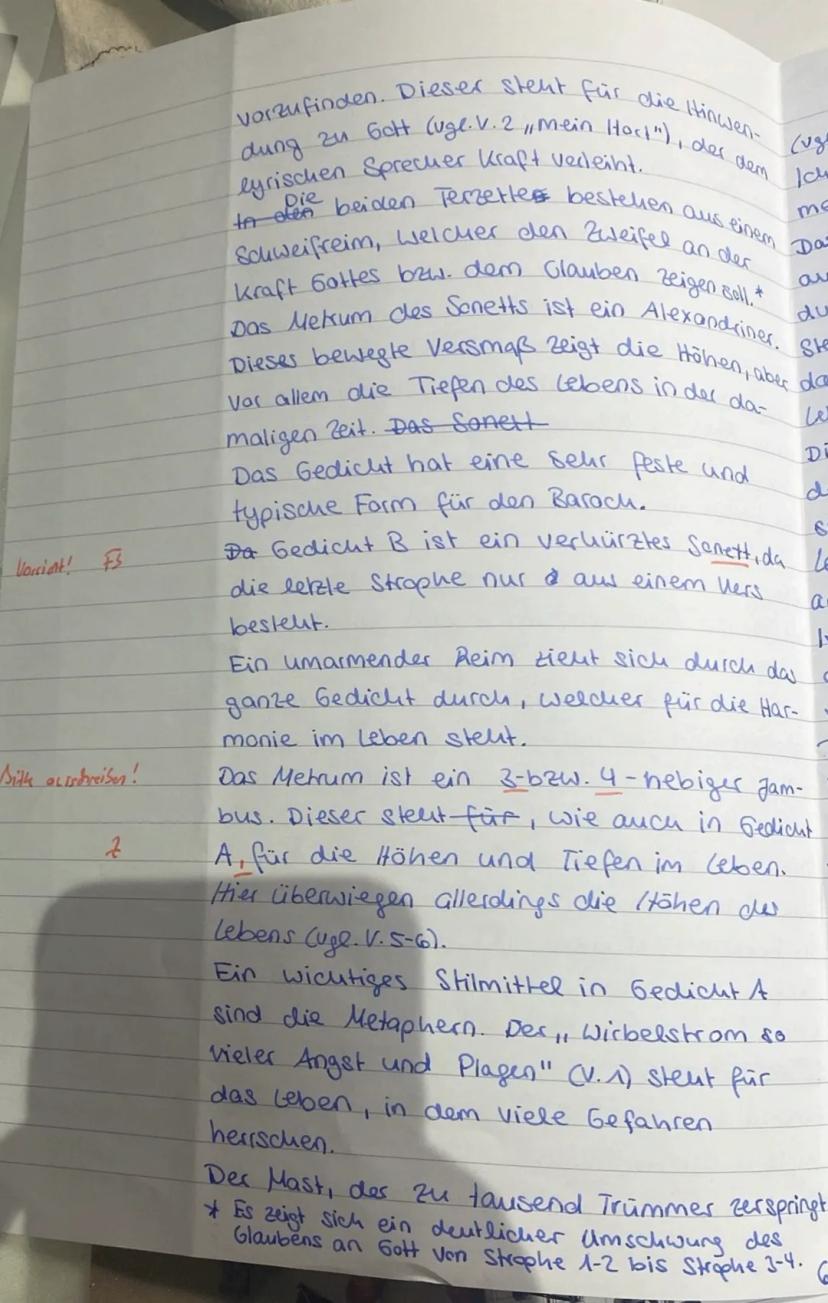 vorzufinden. Dieser steht für die Hinwen-
dung zu Gott (vgl. V. 2 „mein Hort"), der dem
lyrischen Sprecher Kraft verleiht.
Die beiden Terzette bestehen aus einem
Schweifreim, welcher den Zweifel an der
Kraft Gottes bzw. dem Glauben zeigen soll.*
Das Metrum des Sonetts ist ein Alexandriner.
Dieses bewegte Versmaß zeigt die Höhen, aber
vor allem die Tiefen des Lebens in der da-
maligen Zeit. Das Sonett
Das Gedicht hat eine sehr feste und
typische Form für den Barock.
Vorsicht! FS
Da Gedicht B ist ein verkürztes Sonett, da
die letzte Strophe nur aus einem Vers
besteht.
Ein umarmender Reim zieht sich durch das
ganze Gedicht durch, welcher für die Har-
monie im Leben steht.
Bitte ausschreiben!
Das Metrum ist ein 3- bzw. 4-hebiger Jam-
bus. Dieser steht für, wie auch in Gedicht
Z
A, für die Höhen und Tiefen im Leben.
Hier überwiegen allerdings die Höhen des
Lebens (vgl. V. 5-6).
Ein wichtiges Stilmittel in Gedicht A
sind die Metaphern. Der „Wirbelstrom so
vieler Angst und Plagen" (V. 1) steht für
das Leben, in dem viele Gefahren
herrschen.
Der Mast, der zu tausend Trümmer zerspringt
* Es zeigt sich ein deutlicher Umschwung des
Glaubens an Gott von Strophe 1-2 bis Strophe 3-4.